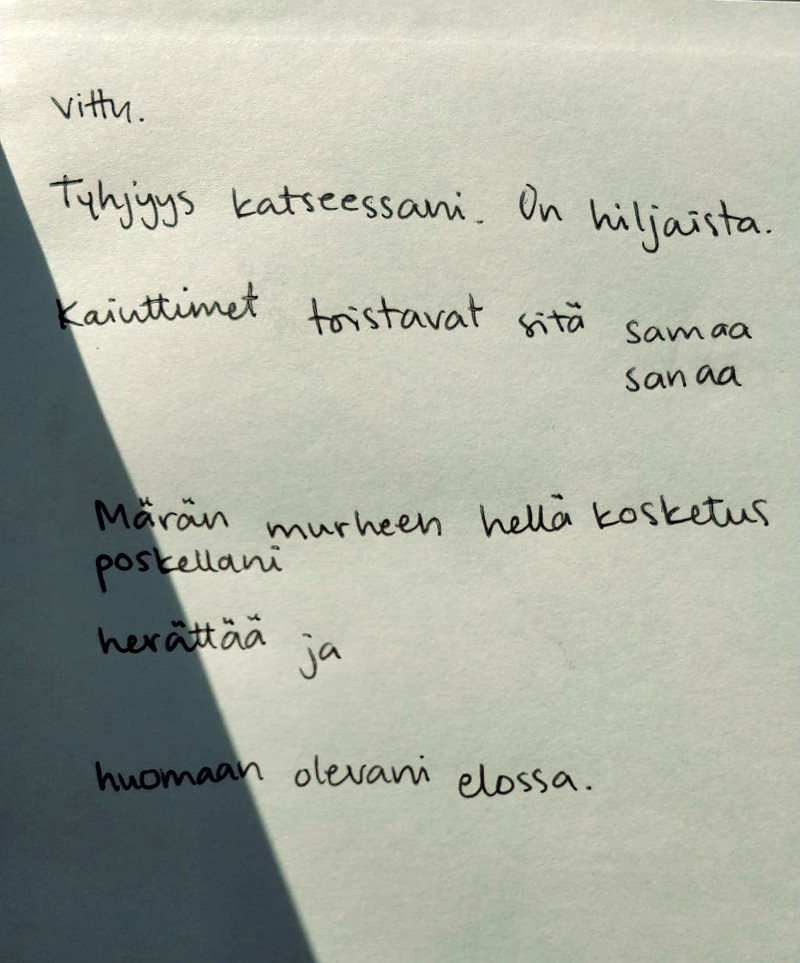 vittu.
Tyhjyys katseessani. On hiljaista.
Kaiuttimet toistavat sitä samaa
sanaa
Märän murheen hellä kosketus
poskellani
herättää ja
huomaan olevani elossa.